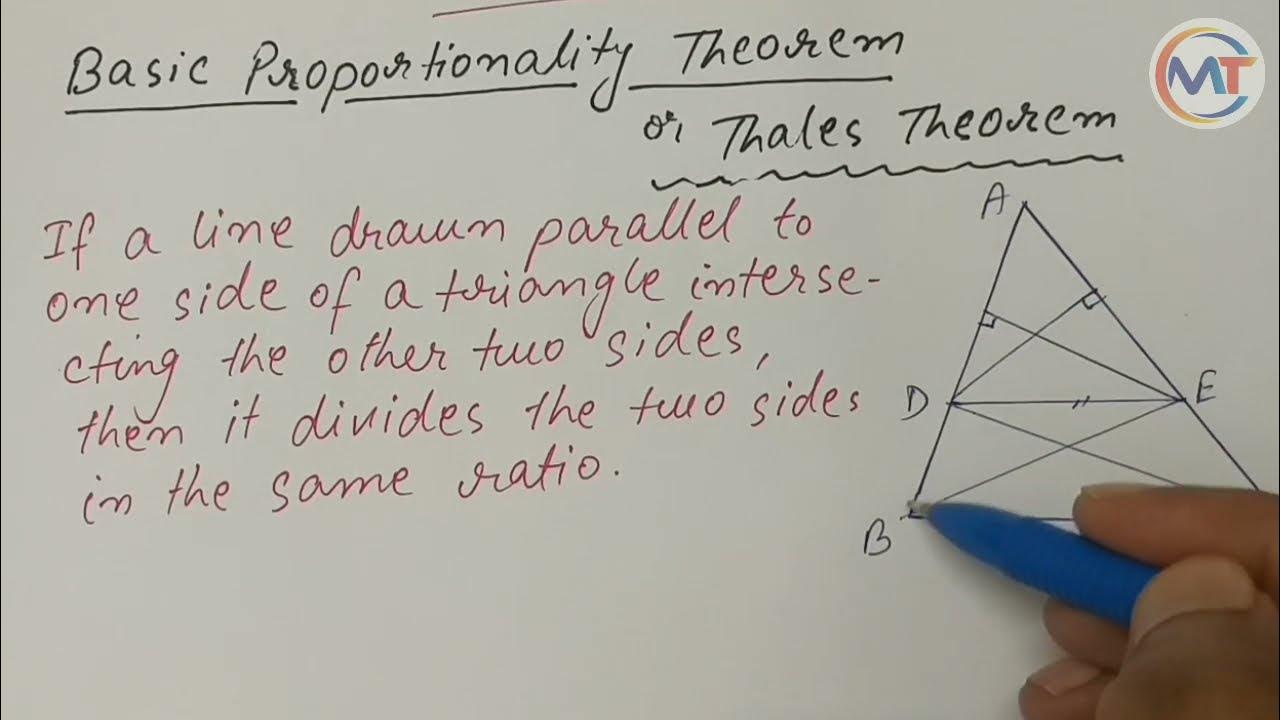 Basic Proportionality Theorem
or, Thales Theorem
If a line drawn parallel to
one side of a triangle interse-
cting the other two sides,
then it divides the two sides
in the same ratio.
A
D
E
B
MT